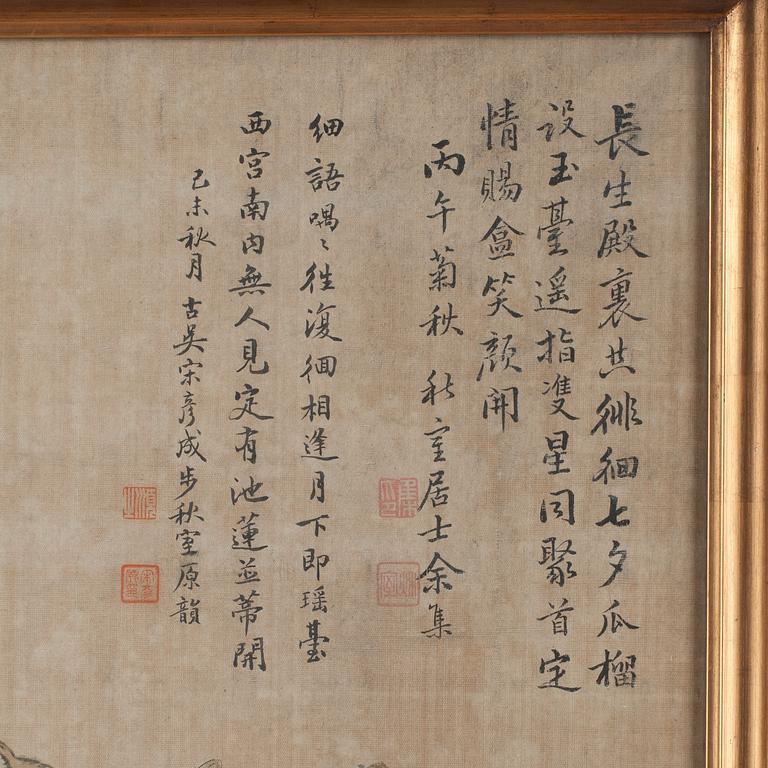 長生殿裏共徘徊七夕瓜榴
設玉臺遥指雙星同聚首定
情賜盒笑顏開
丙午菊秋 秋室居士余集
細語喁〻往復徊相逢月下即瑶臺
西宮南内無人見定有池蓮並蒂開
己未秋月古吳宋彥成步秋室原韻